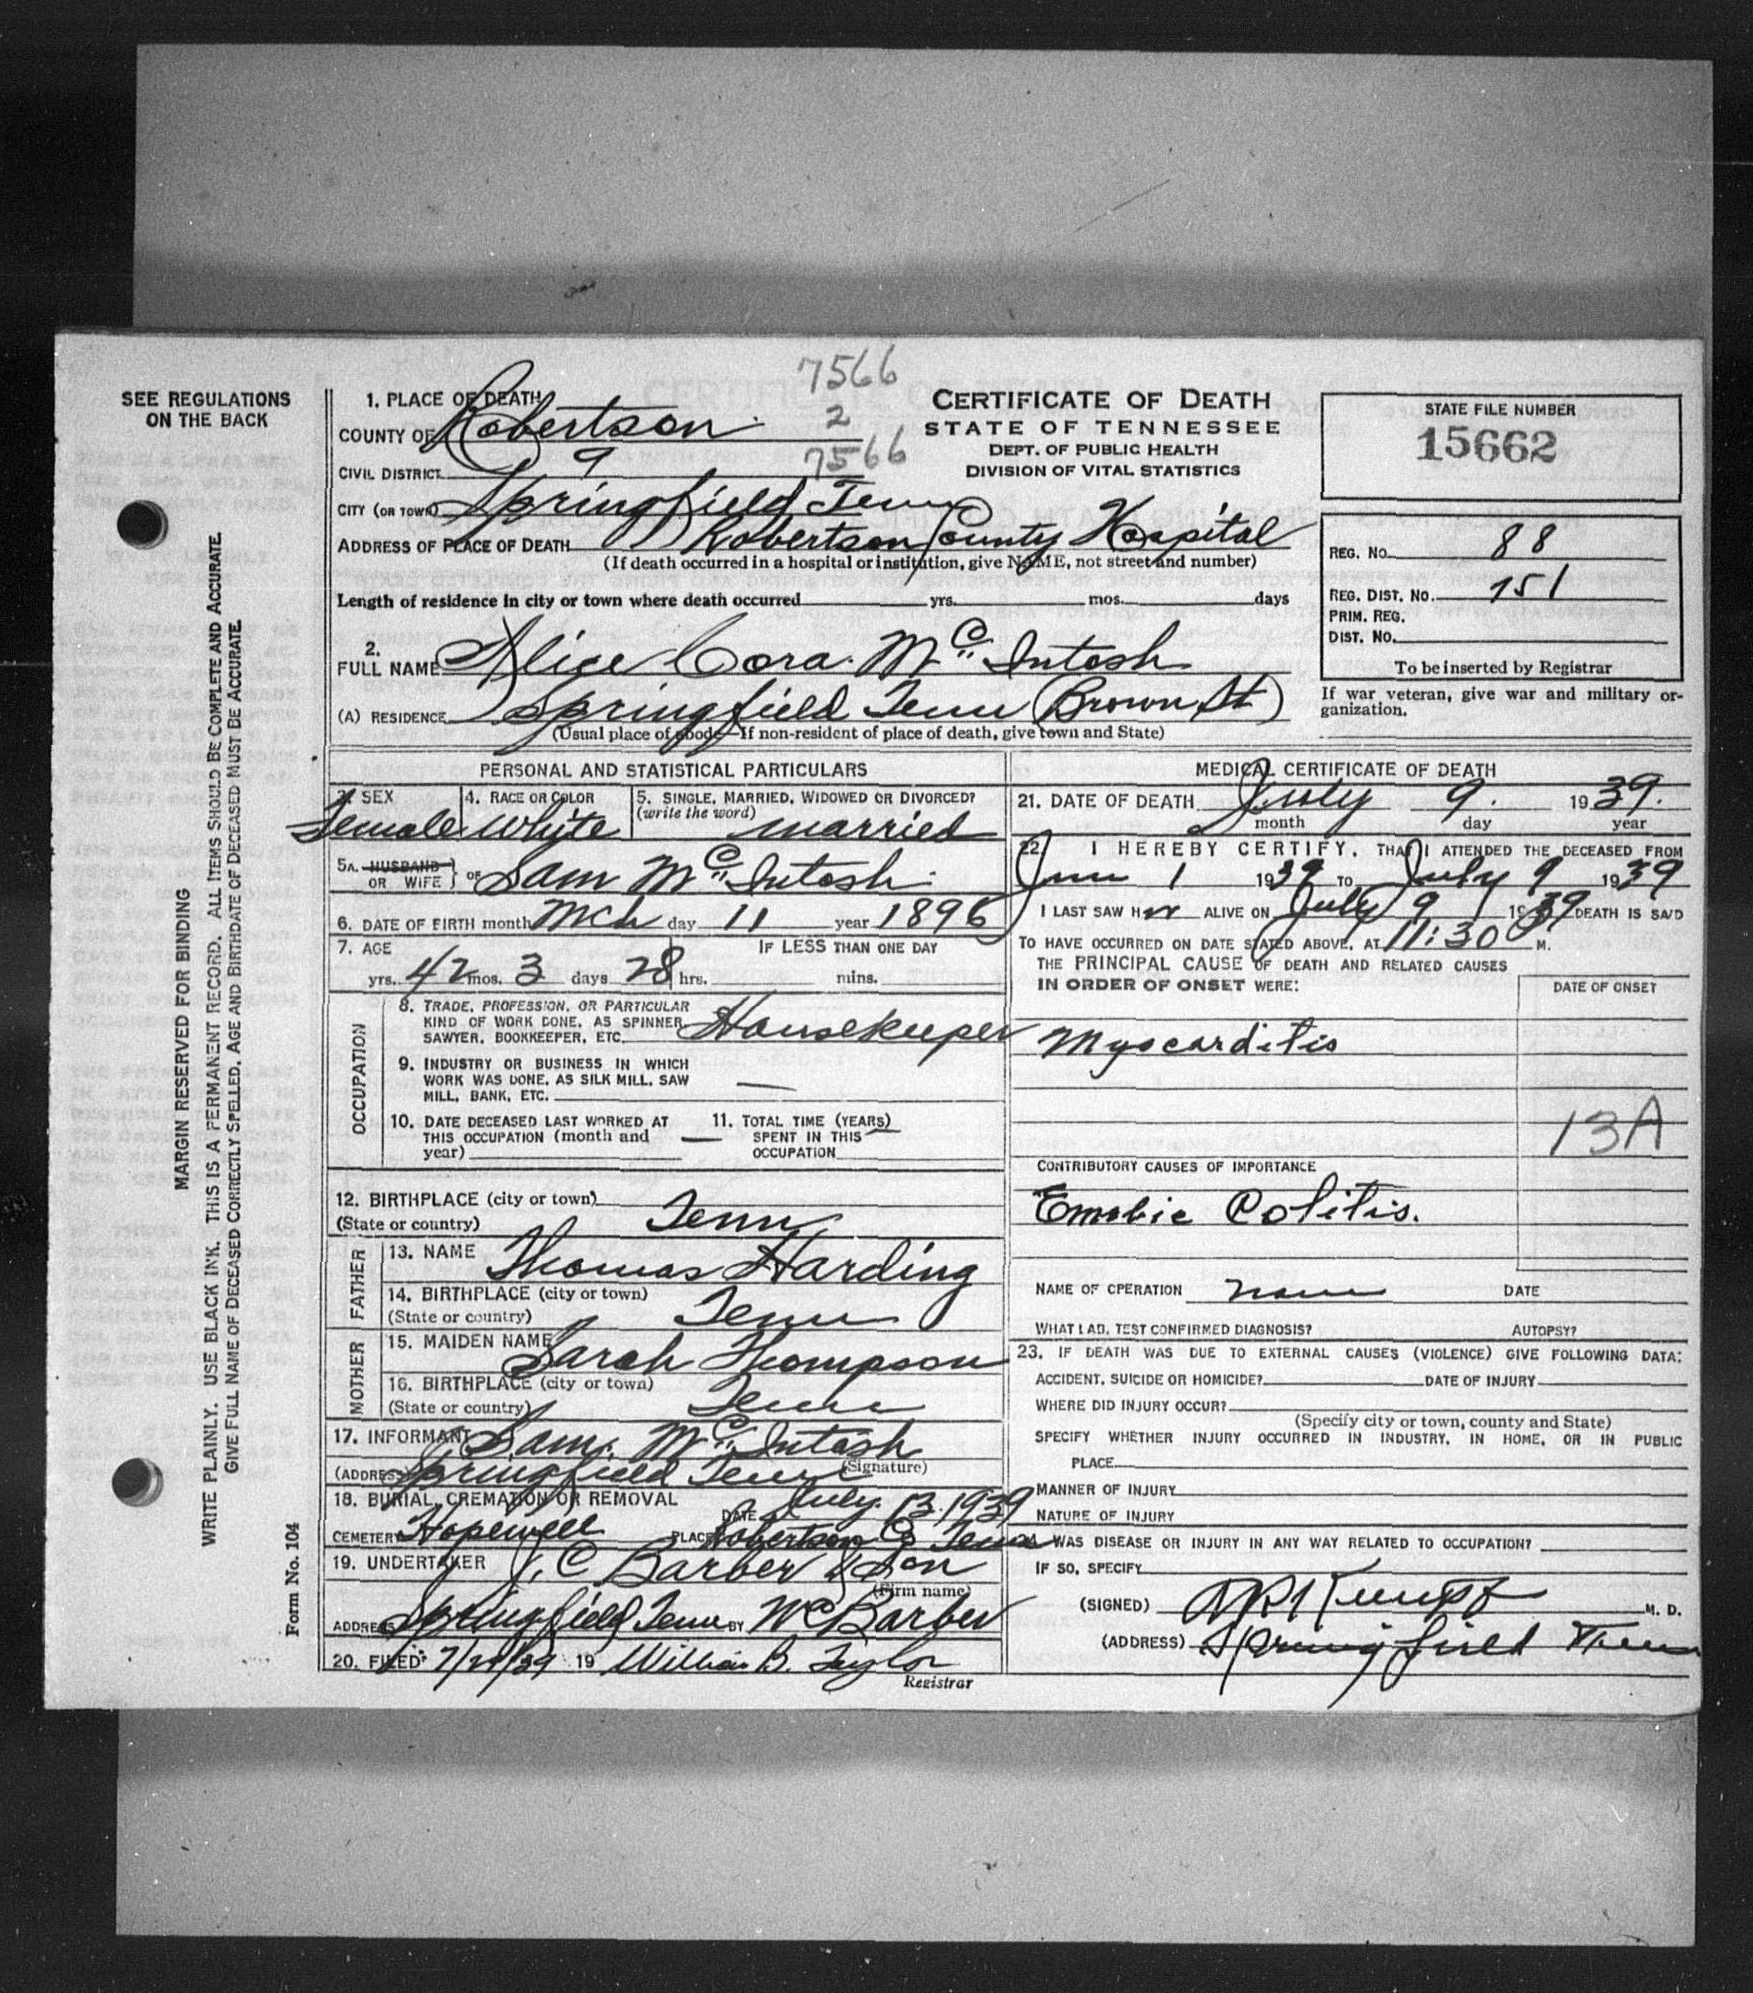 SEE REGULATIONS
ON THE BACK
MARGIN RESERVED FOR BINDING
WRITE PLAINLY. USE BLACK INK. THIS IS A PERMANENT RECORD. ALL ITEMS SHOULD BE COMPLETE AND ACCURATE.
GIVE FULL NAME OF DECEASED CORRECTLY SPELLED. AGE AND BIRTHDATE OF DECEASED MUST BE ACCURATE.
Form No. 104
7566
2
7566
1. PLACE OF DEATH
COUNTY OF Robertson
CIVIL DISTRICT 9
CITY (OR TOWN) Springfield Tenn
ADDRESS OF PLACE OF DEATH Robertson County Hospital
(If death occurred in a hospital or institution, give NAME, not street and number)
Length of residence in city or town where death occurred yrs. mos. days
CERTIFICATE OF DEATH
STATE OF TENNESSEE
DEPT. OF PUBLIC HEALTH
DIVISION OF VITAL STATISTICS
STATE FILE NUMBER
15662
REG. NO. 88
REG. DIST. NO. 751
PRIM. REG.
DIST. NO.
To be inserted by Registrar
If war veteran, give war and military or-
ganization.
2.
FULL NAME Alice Cora Mc Intosh
(A) RESIDENCE Springfield Tenn (Brown St)
(Usual place of abode—If non-resident of place of death, give town and State)
PERSONAL AND STATISTICAL PARTICULARS
3. SEX 4. RACE OR COLOR 5. SINGLE, MARRIED, WIDOWED OR DIVORCED?
(write the word)
Female White married
5A. HUSBAND
OR WIFE } OF Sam Mc Intosh
6. DATE OF BIRTH month Mch day 11 year 1896
7. AGE IF LESS THAN ONE DAY
yrs. 42 mos. 3 days 28 hrs. mins.
OCCUPATION
8. TRADE, PROFESSION, OR PARTICULAR
KIND OF WORK DONE, AS SPINNER,
SAWYER, BOOKKEEPER, ETC. Housekeeper
9. INDUSTRY OR BUSINESS IN WHICH
WORK WAS DONE, AS SILK MILL, SAW
MILL, BANK, ETC. —
10. DATE DECEASED LAST WORKED AT
THIS OCCUPATION (month and
year) —
11. TOTAL TIME (YEARS)
SPENT IN THIS —
OCCUPATION
12. BIRTHPLACE (city or town)
(State or country) Tenn
FATHER
13. NAME Thomas Harding
14. BIRTHPLACE (city or town)
(State or country) Tenn
MOTHER
15. MAIDEN NAME Sarah Thompson
16. BIRTHPLACE (city or town)
(State or country) Tenn
17. INFORMANT Sam Mc Intosh
(ADDRESS) Springfield Tenn (Signature)
18. BURIAL, CREMATION OR REMOVAL DATE July 13. 1939
CEMETERY Hopewell PLACE Robertson Co Tenn
19. UNDERTAKER J. C Barber & Son
(Firm name)
ADDRESS Springfield Tenn BY W C Barber
20. FILED 19 William B. Taylor
Registrar
MEDICAL CERTIFICATE OF DEATH
21. DATE OF DEATH July 9. 1939.
month day year
22. I HEREBY CERTIFY, THAT I ATTENDED THE DECEASED FROM
1 1939 TO July 9 1939
I LAST SAW HER ALIVE ON July 9 1939 DEATH IS SAID
TO HAVE OCCURRED ON DATE STATED ABOVE, AT 11:30 P M.
THE PRINCIPAL CAUSE OF DEATH AND RELATED CAUSES
IN ORDER OF ONSET WERE:
DATE OF ONSET
Myocarditis
13A
CONTRIBUTORY CAUSES OF IMPORTANCE
Emobic Colitis.
NAME OF OPERATION none DATE
WHAT LAB. TEST CONFIRMED DIAGNOSIS? AUTOPSY?
23. IF DEATH WAS DUE TO EXTERNAL CAUSES (VIOLENCE) GIVE FOLLOWING DATA:
ACCIDENT, SUICIDE OR HOMICIDE? DATE OF INJURY
WHERE DID INJURY OCCUR?
(Specify city or town, county and State)
SPECIFY WHETHER INJURY OCCURRED IN INDUSTRY, IN HOME, OR IN PUBLIC
PLACE
MANNER OF INJURY
NATURE OF INJURY
WAS DISEASE OR INJURY IN ANY WAY RELATED TO OCCUPATION?
IF SO, SPECIFY
(SIGNED) M. D.
(ADDRESS) Springfield Tenn